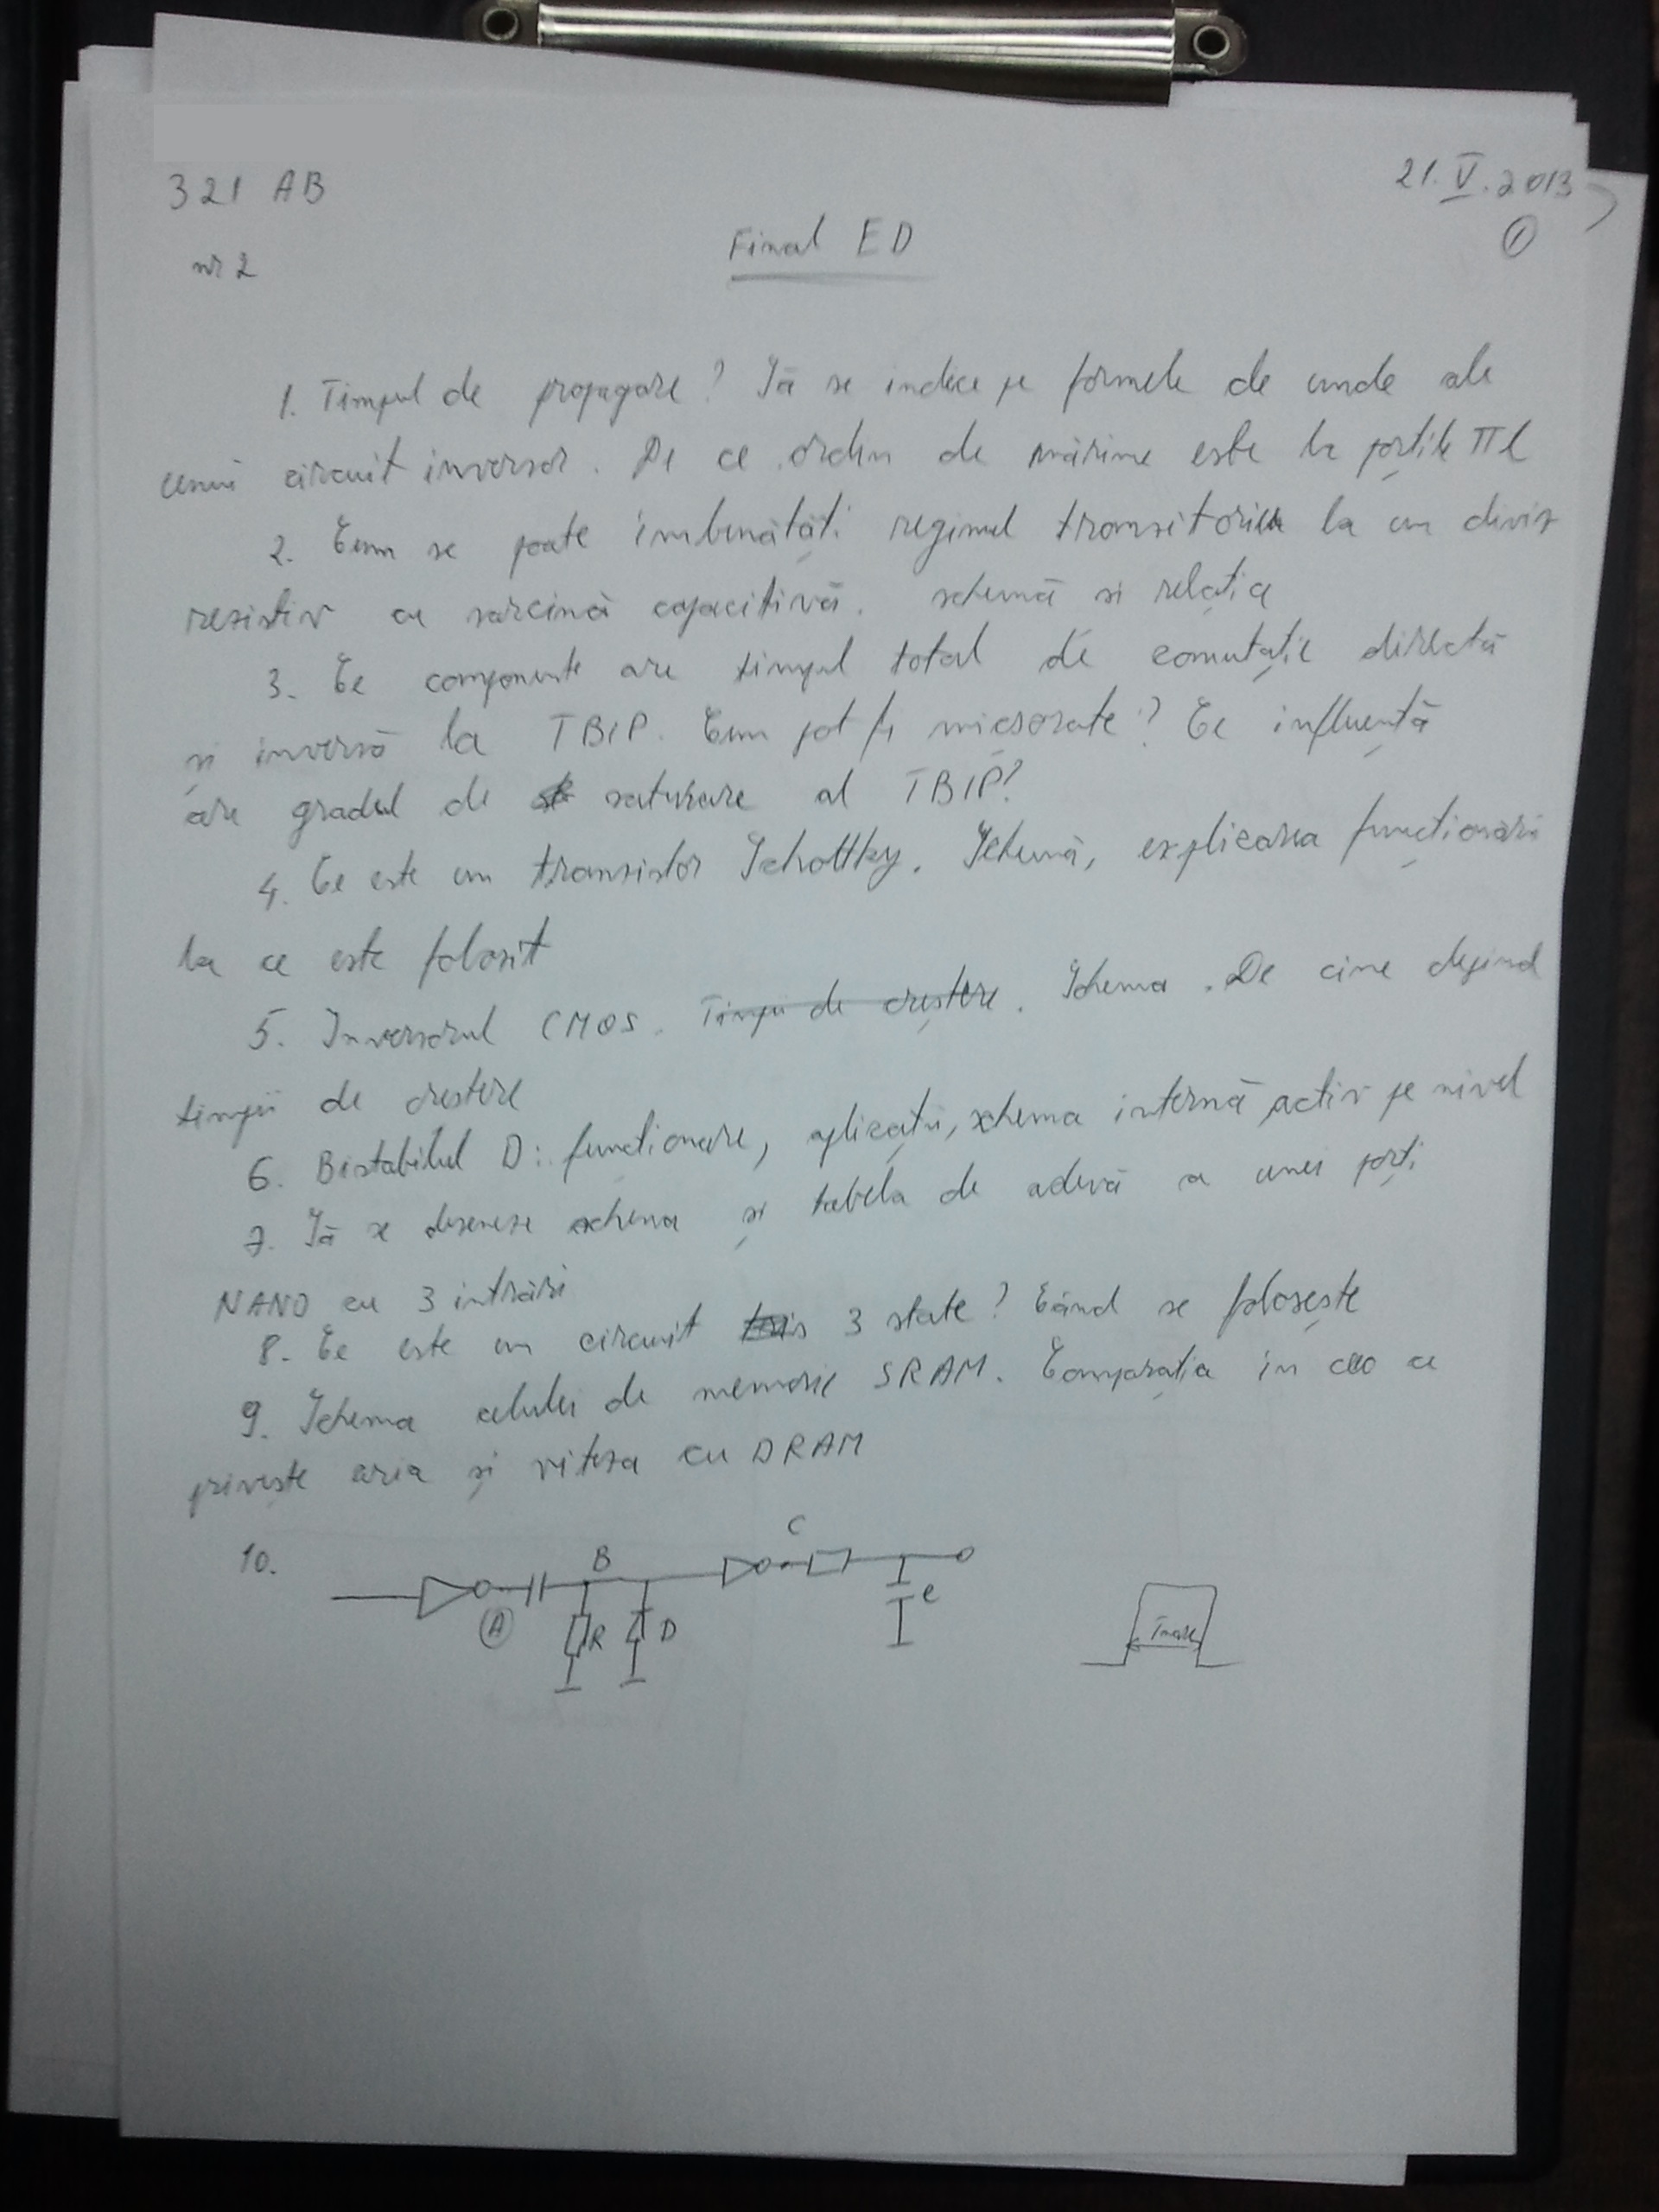 321 AB
21.V.2013
1
nr 2
Final ED
1. Timpul de propagare? Să se indice pe formele de unde ale
unui circuit inversor. De ce ordin de mărime este la porțile TTL
2. Cum se poate îmbunătăți regimul tranzitoriu la un diviz
rezistiv cu sarcină capacitivă. schemă si relația
3. Ce componente are timpul total de comutație directă
și inversă la TBIP. Cum pot fi micșorate? Ce influență
are gradul de saturare al TBIP?
4. Ce este un tranzistor Schottky. Schemă, explicarea funcționării
la ce este folosit
5. Inversorul CMOS. Timpii de creștere. Schema. De cine depind
timpii de crestere
6. Bistabilul D: funcționare, aplicații, schema internă activ pe nivel
7. Să se deseneze schema și tabela de adevă a unei porți
NAND cu 3 intrări
8. Ce este un circuit 3 state? Când se folosește
9. Schema celulei de memorie SRAM. Comparația in ceea ce
privește aria și viteza cu DRAM
10.
A
B
R
D
C
C